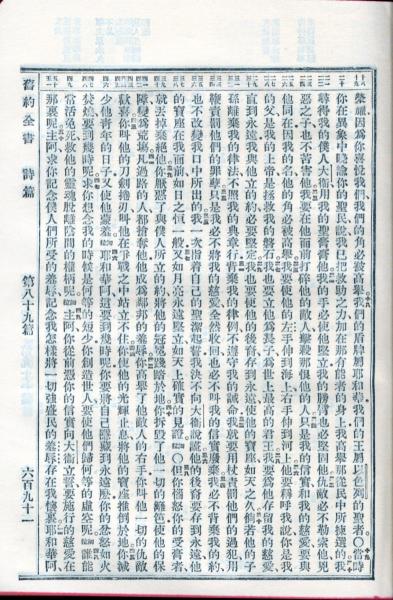 榮耀因為你喜悅我們我們的角必被高舉我們的盾牌屬耶和華我們的王屬以色列的聖者○當時
你在異象中曉諭你的聖民說我已把救助之力加在那有能者的身上我高舉那從民中所揀選的我
尋得我的僕人大衛用我的聖膏膏他我的手必使他堅立我的膀臂也必堅固他仇敵必不勒索他兇
惡之子也不苦害他我要在他面前打碎他的敵人擊殺那恨他的人只是我的信實和我的慈愛要與
他同在因我的名他的角必被高舉我要使他的左手伸到海上右手伸到河上他要稱呼我說你是我
的父是我的上帝是拯救我的磐石我也要立他為長子為世上最高的君王我要為他存留我的慈愛
直到永遠我與他立的約必要堅定我也要使他的後裔存到永遠使他的寶座如天之久倘若他的子
孫離棄我的律法不照我的典章行背棄我的律例不遵守我的誡命我就要用杖責罰他們的過犯用
鞭責罰他們的罪孽只是我必不將我的慈愛全然收回也必不叫我的信實廢棄我必不背棄我的約
也不改變我口中所出的我一次指着自己的聖潔起誓我決不向大衛說謊他的後裔要存到永遠他
的寶座在我面前如日之恆一般又如月亮永遠堅立如天上確實的見證細拉○但你惱怒你的受膏者
就丟掉棄絕他你厭惡了與僕人所立的約將他的冠冕踐踏於地你拆毀了他一切的籬笆使他的保
障變為荒場凡過路的人都搶奪他他成為鄰邦的羞辱你高舉了他敵人的右手你叫他一切的仇敵
歡喜你叫他的刀劍捲刃叫他在爭戰之中站立不住你使他的光輝止息將他的寶座推倒於地你減
少他青年的日子又使他蒙羞細拉○耶和華阿這要到幾時呢你要將自己隱藏到永遠麼你的忿怒如火
焚燒要到幾時呢求你想念我的時候是何等的短少你創造世人要使他們歸何等的虛空呢細拉誰能
常活免死救他的靈魂脫離陰間的權柄呢細拉主阿你從前憑你的信實向大衛立誓要施行的慈愛在
那裏呢主阿求你記念僕人們所受的羞辱記念我怎樣將一切強盛民的羞辱存在我懷裏耶和華阿
舊約全書 詩篇 第八十九篇 六百九十一